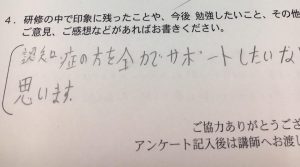 4．研修の中で印象に残ったことや、今後 勉強したいこと、その他
ご意見、ご感想などがあればお書きください。
認知症の方を全力でサポートしたいな
思います。
ご協力ありがとうござ
アンケート記入後は講師へお渡し